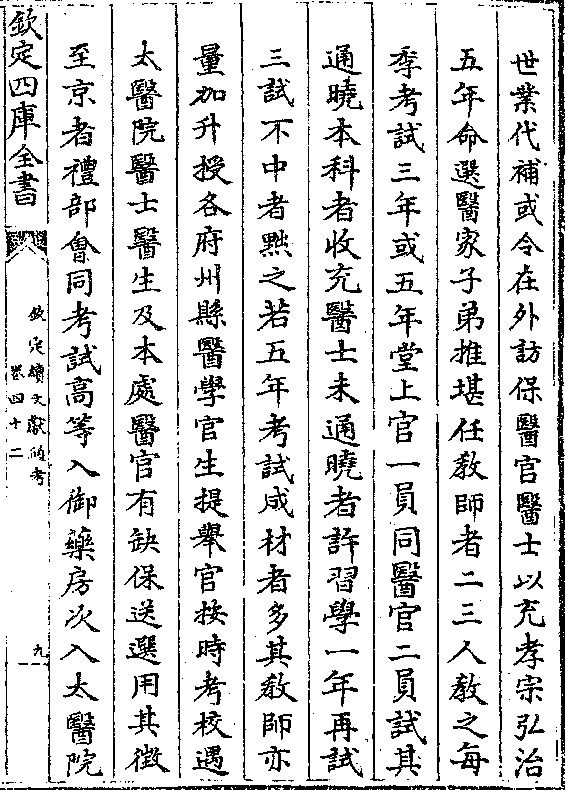 世業代補或令在外訪保醫官醫士以充孝宗弘治
五年命選醫家子弟推堪任教師者二三人教之每
季考試三年或五年堂上官一員同醫官二員試其
通曉本科者收充醫士未通曉者許習學一年再試
三試不中者黜之若五年考試成材者多其教師亦
量加升授各府州縣醫學官生提舉官按時考校遇
太醫院醫士醫生及本處醫官有缺保送選用其徴
至京者禮部㑹同考試高等入御藥房次入太醫院
欽定四庫全書
欽定續文獻通考
卷四十二
九